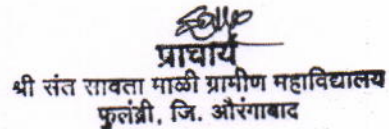 प्राचार्य
श्री संत सावता माळी ग्रामीण महाविद्यालय
फुलंब्री, जि. औरंगाबाद